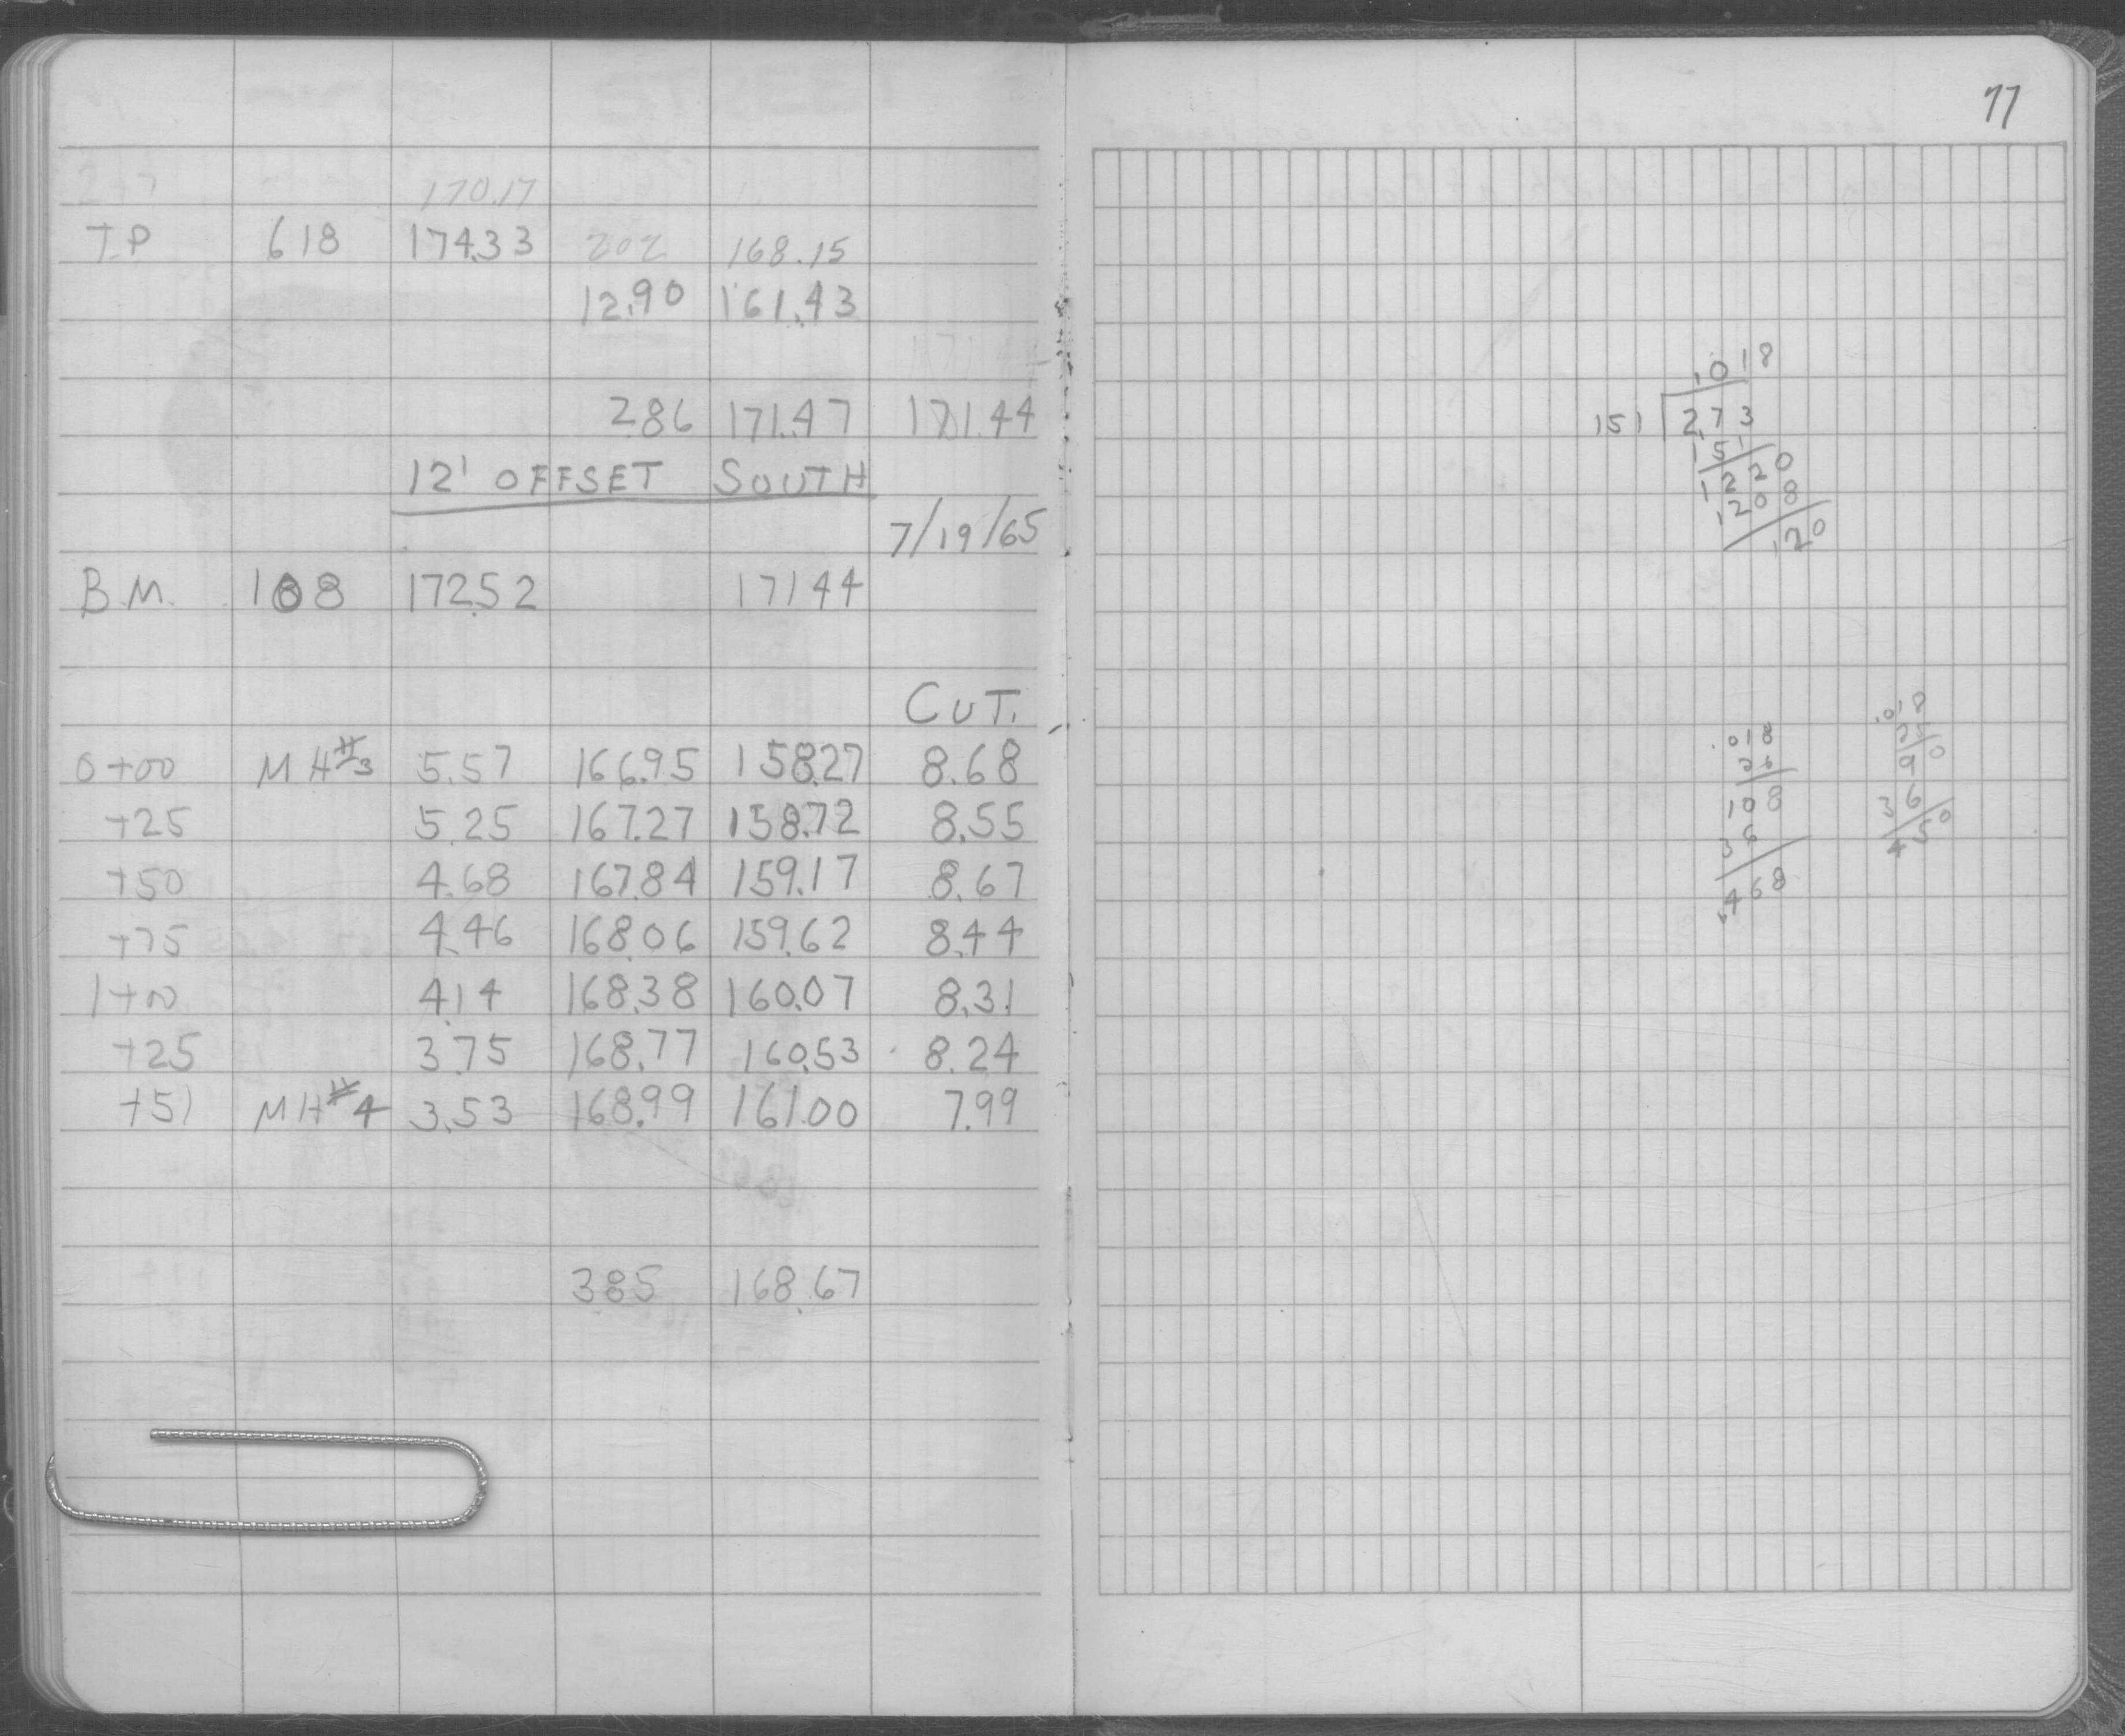 77
170.17
T.P 618 174.33 202 168.15
12.90 161.43
286 171.47 171.44
12' OFFSET SOUTH
7/19/65
B.M. 108 172.52 17144
CUT.
0+00 MH#3 5.57 166.95 158.27 8.68
+25 5.25 167.27 158.72 8.55
+50 4.68 167.84 159.17 8.67
+75 4.46 168.06 159.62 8.44
1+00 4.14 168.38 160.07 8.31
+25 3.75 168.77 160.53 8.24
+51 MH#4 3.53 168.99 161.00 7.99
385 168.67
.018
151 2.73
1 51
1 220
1 208
120
.018
26
108
36
.468
.018
25
90
36
450